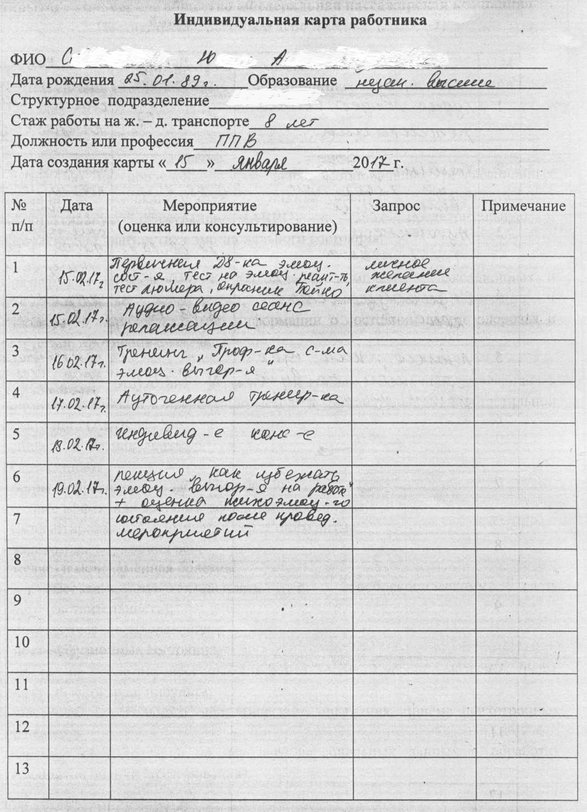 Индивидуальная карта работника
ФИО С Ю А
Дата рождения 25.01.89г. Образование незак. высшее
Структурное подразделение
Стаж работы на ж. – д. транспорте 8 лет
Должность или профессия ППВ
Дата создания карты « 15 » января 2017 г.
№ п/п Дата Мероприятие (оценка или консультирование) Запрос Примечание
1 15.02.17г. Первичная DS-ка эмоц. личное
сост-я, тест на эмоц. реакт-ть, желание
тест Люшера, опросник Бойко клиента
2 15.02.17г. Аудио-видео сеанс
релаксации"
3 16.02.17г. Тренинг „Проф-ка с-ма
эмоц. выгор-я"
4 17.02.17г. Аутогенная тренир-ка
5 18.02.17г. Индивид-е конс-е
6 19.02.17г. лекция „как избежать
эмоц. выгор-я на работе"
+ оценка психоэмоц-го
7 состояния после провед.
мероприятий
8
9
10
11
12
13